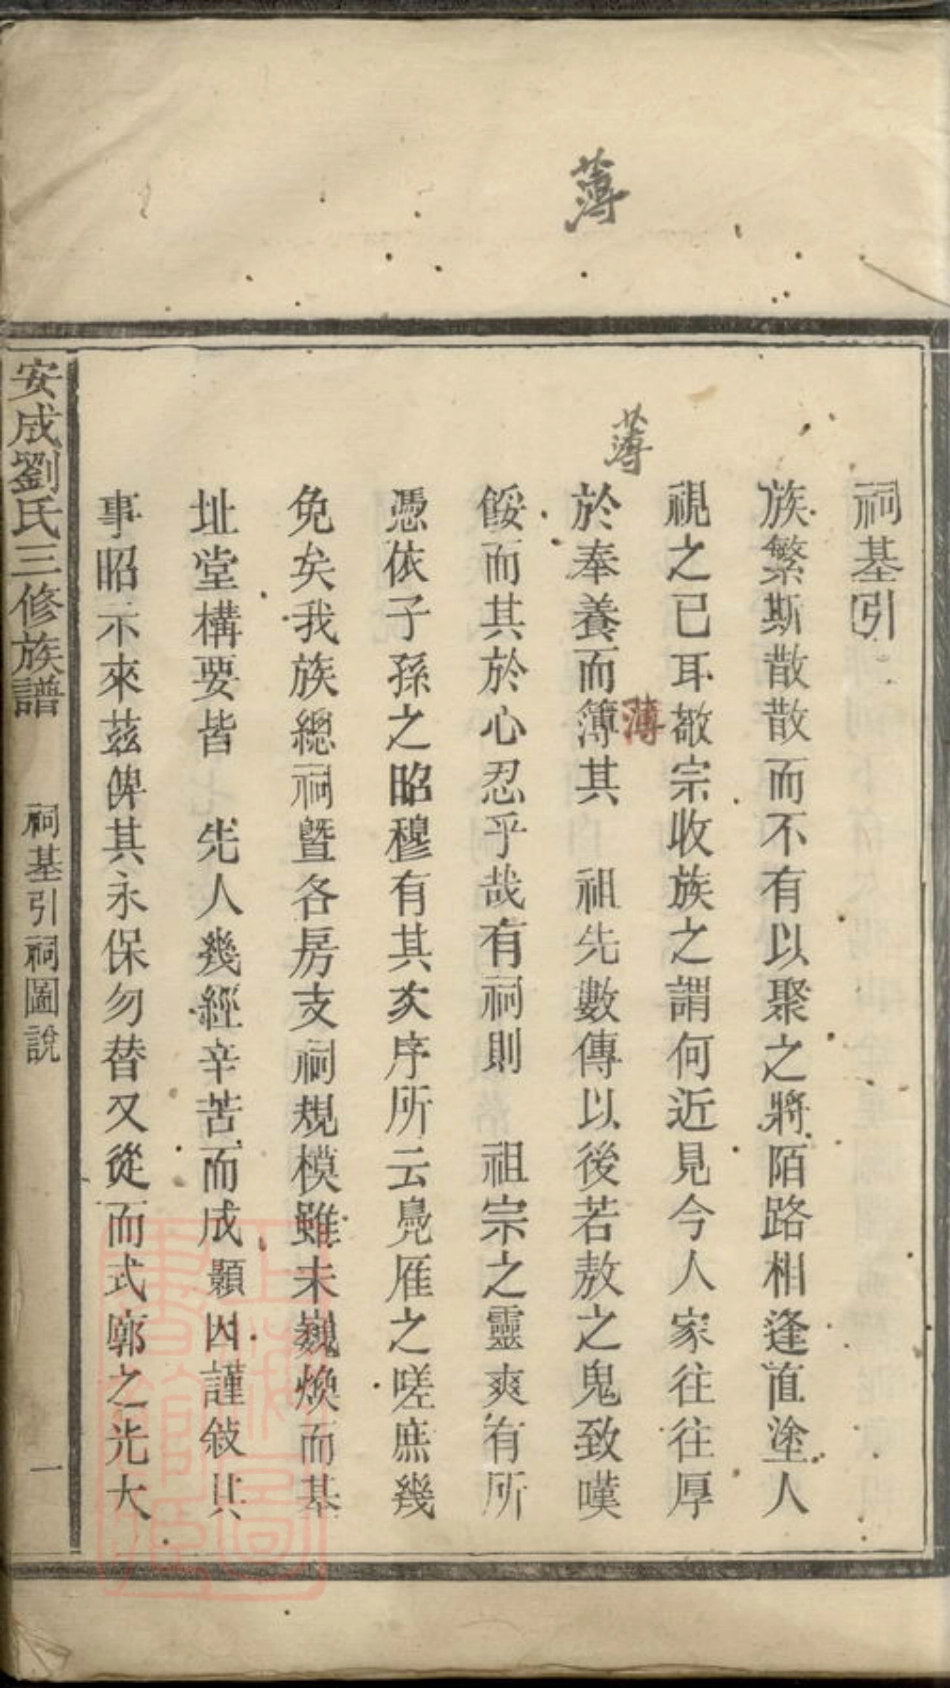 薄
薄
祠基引
族繁斯散散而不有以聚之將陌路相逢直塗人
視之已耳敬宗收族之謂何近見今人家往往厚
薄
於奉養而簿其　祖先數傳以後若敖之鬼致嘆
餒而其於心忍乎哉有祠則　祖宗之靈爽有所
憑依子孫之昭穆有其次序所云鳧雁之嗟庶幾
免矣我族總祠暨各房支祠規模雖未巍煥而基
址堂構要皆　先人幾經辛苦而成顯因謹敍其
事昭示來茲俾其永保勿替又從而式廓之光大
安成劉氏三修族譜　祠基引祠圖說　一